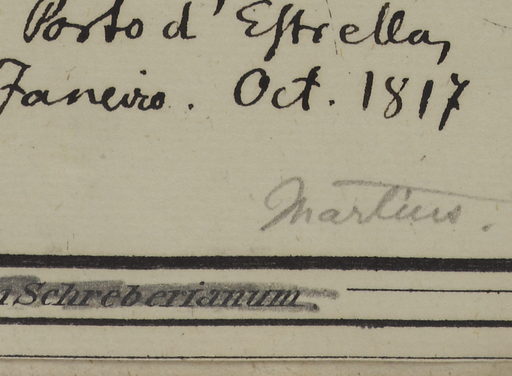 Porto d'Estrella,
Janeiro. Oct. 1817
Martius.
Schreberianum.